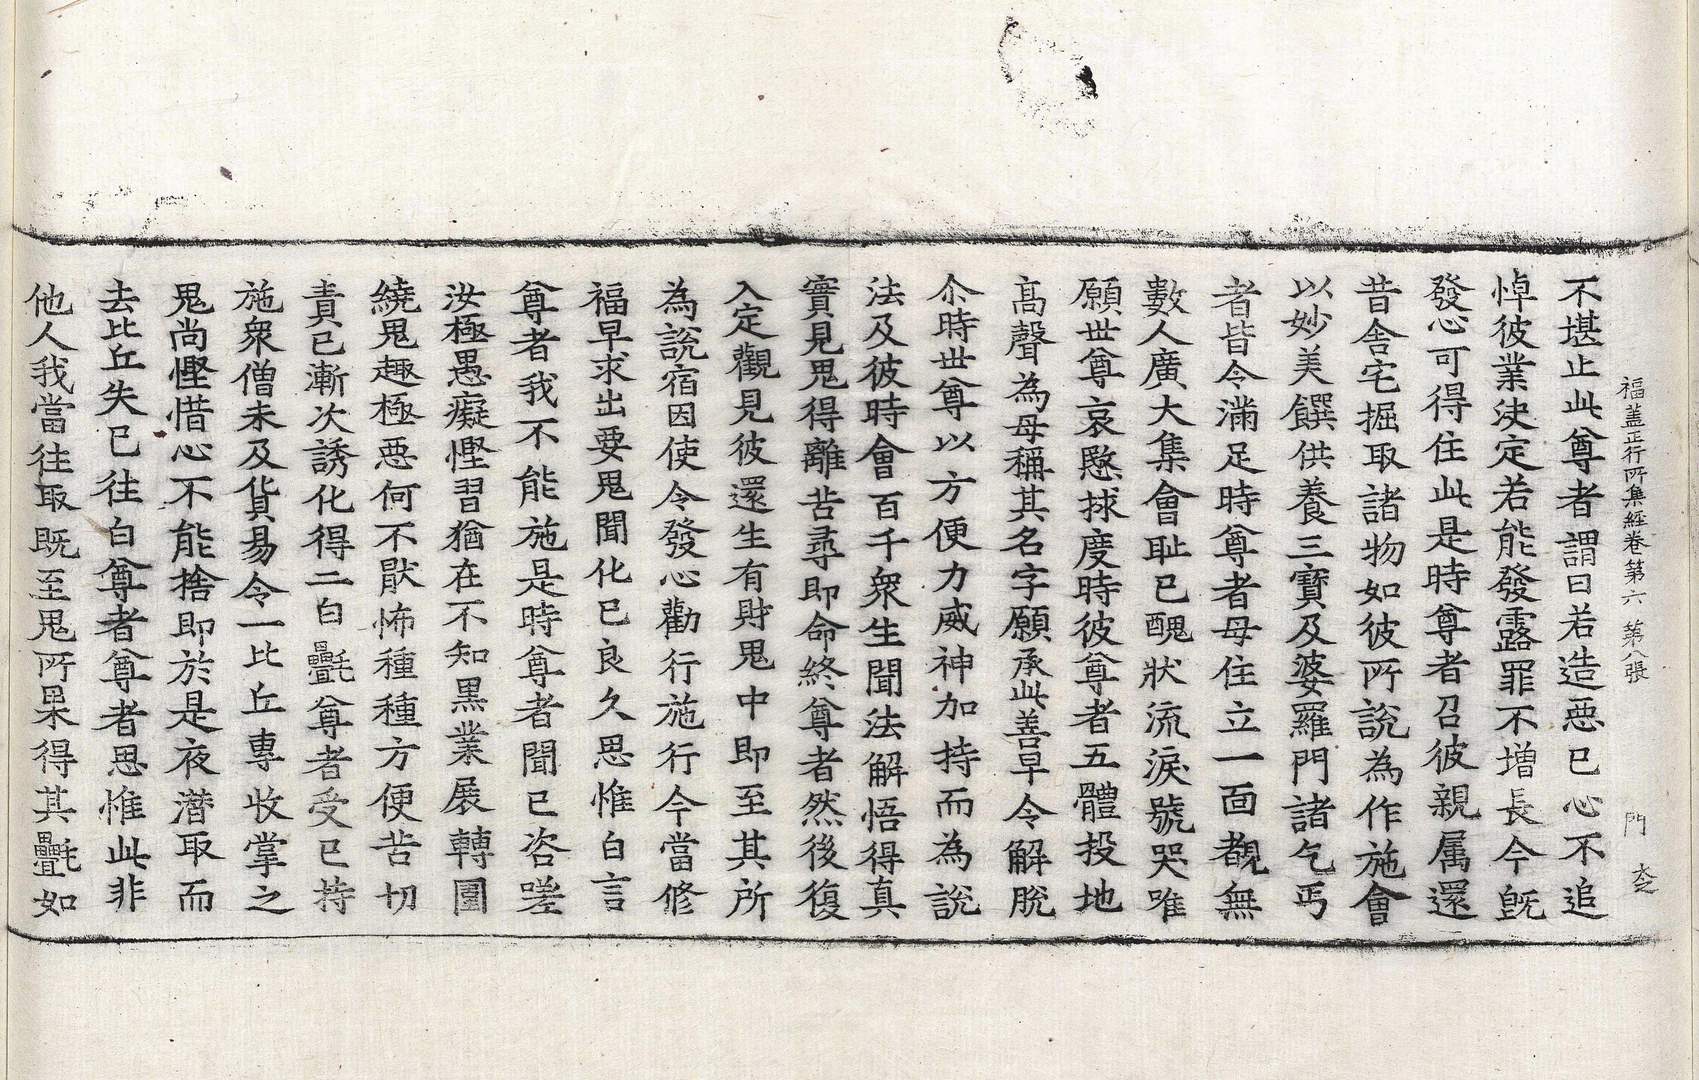 福盖正行所集經卷第六 第八張 門
不堪止此尊者謂曰若造惡已心不追
悼彼業決定若能發露罪不增長今旣
發心可得住此是時尊者召彼親属還
昔舍宅掘取諸物如彼所說為作施會
以妙美饌供養三寶及婆羅門諸乞丐
者皆令滿足時尊者母住立一面覩無
數人廣大集會耻已醜狀流淚號哭唯
願世尊哀愍救度時彼尊者五體投地
高聲為母稱其名字願承此善早令解脫
尒時世尊以方便力威神加持而為說
法及彼時會百千衆生聞法解悟得真
實見鬼得離苦尋即命終尊者然後復
入定觀見彼還生有財鬼中即至其所
為說宿因使令發心勸行施行今當修
福早求出要鬼聞化已良久思惟白言
尊者我不能施是時尊者聞已咨嗟
汝極愚癡慳習猶在不知黒業展轉圍
繞鬼趣極惡何不猒怖種種方便苦切
責已漸次誘化得二白㲲尊者受已持
施衆僧未及貨易令一比丘專收掌之
鬼尚慳惜心不能捨即於是夜潜取而
去比丘失已往白尊者尊者思惟此非
他人我當往取旣至鬼所果得其㲲如